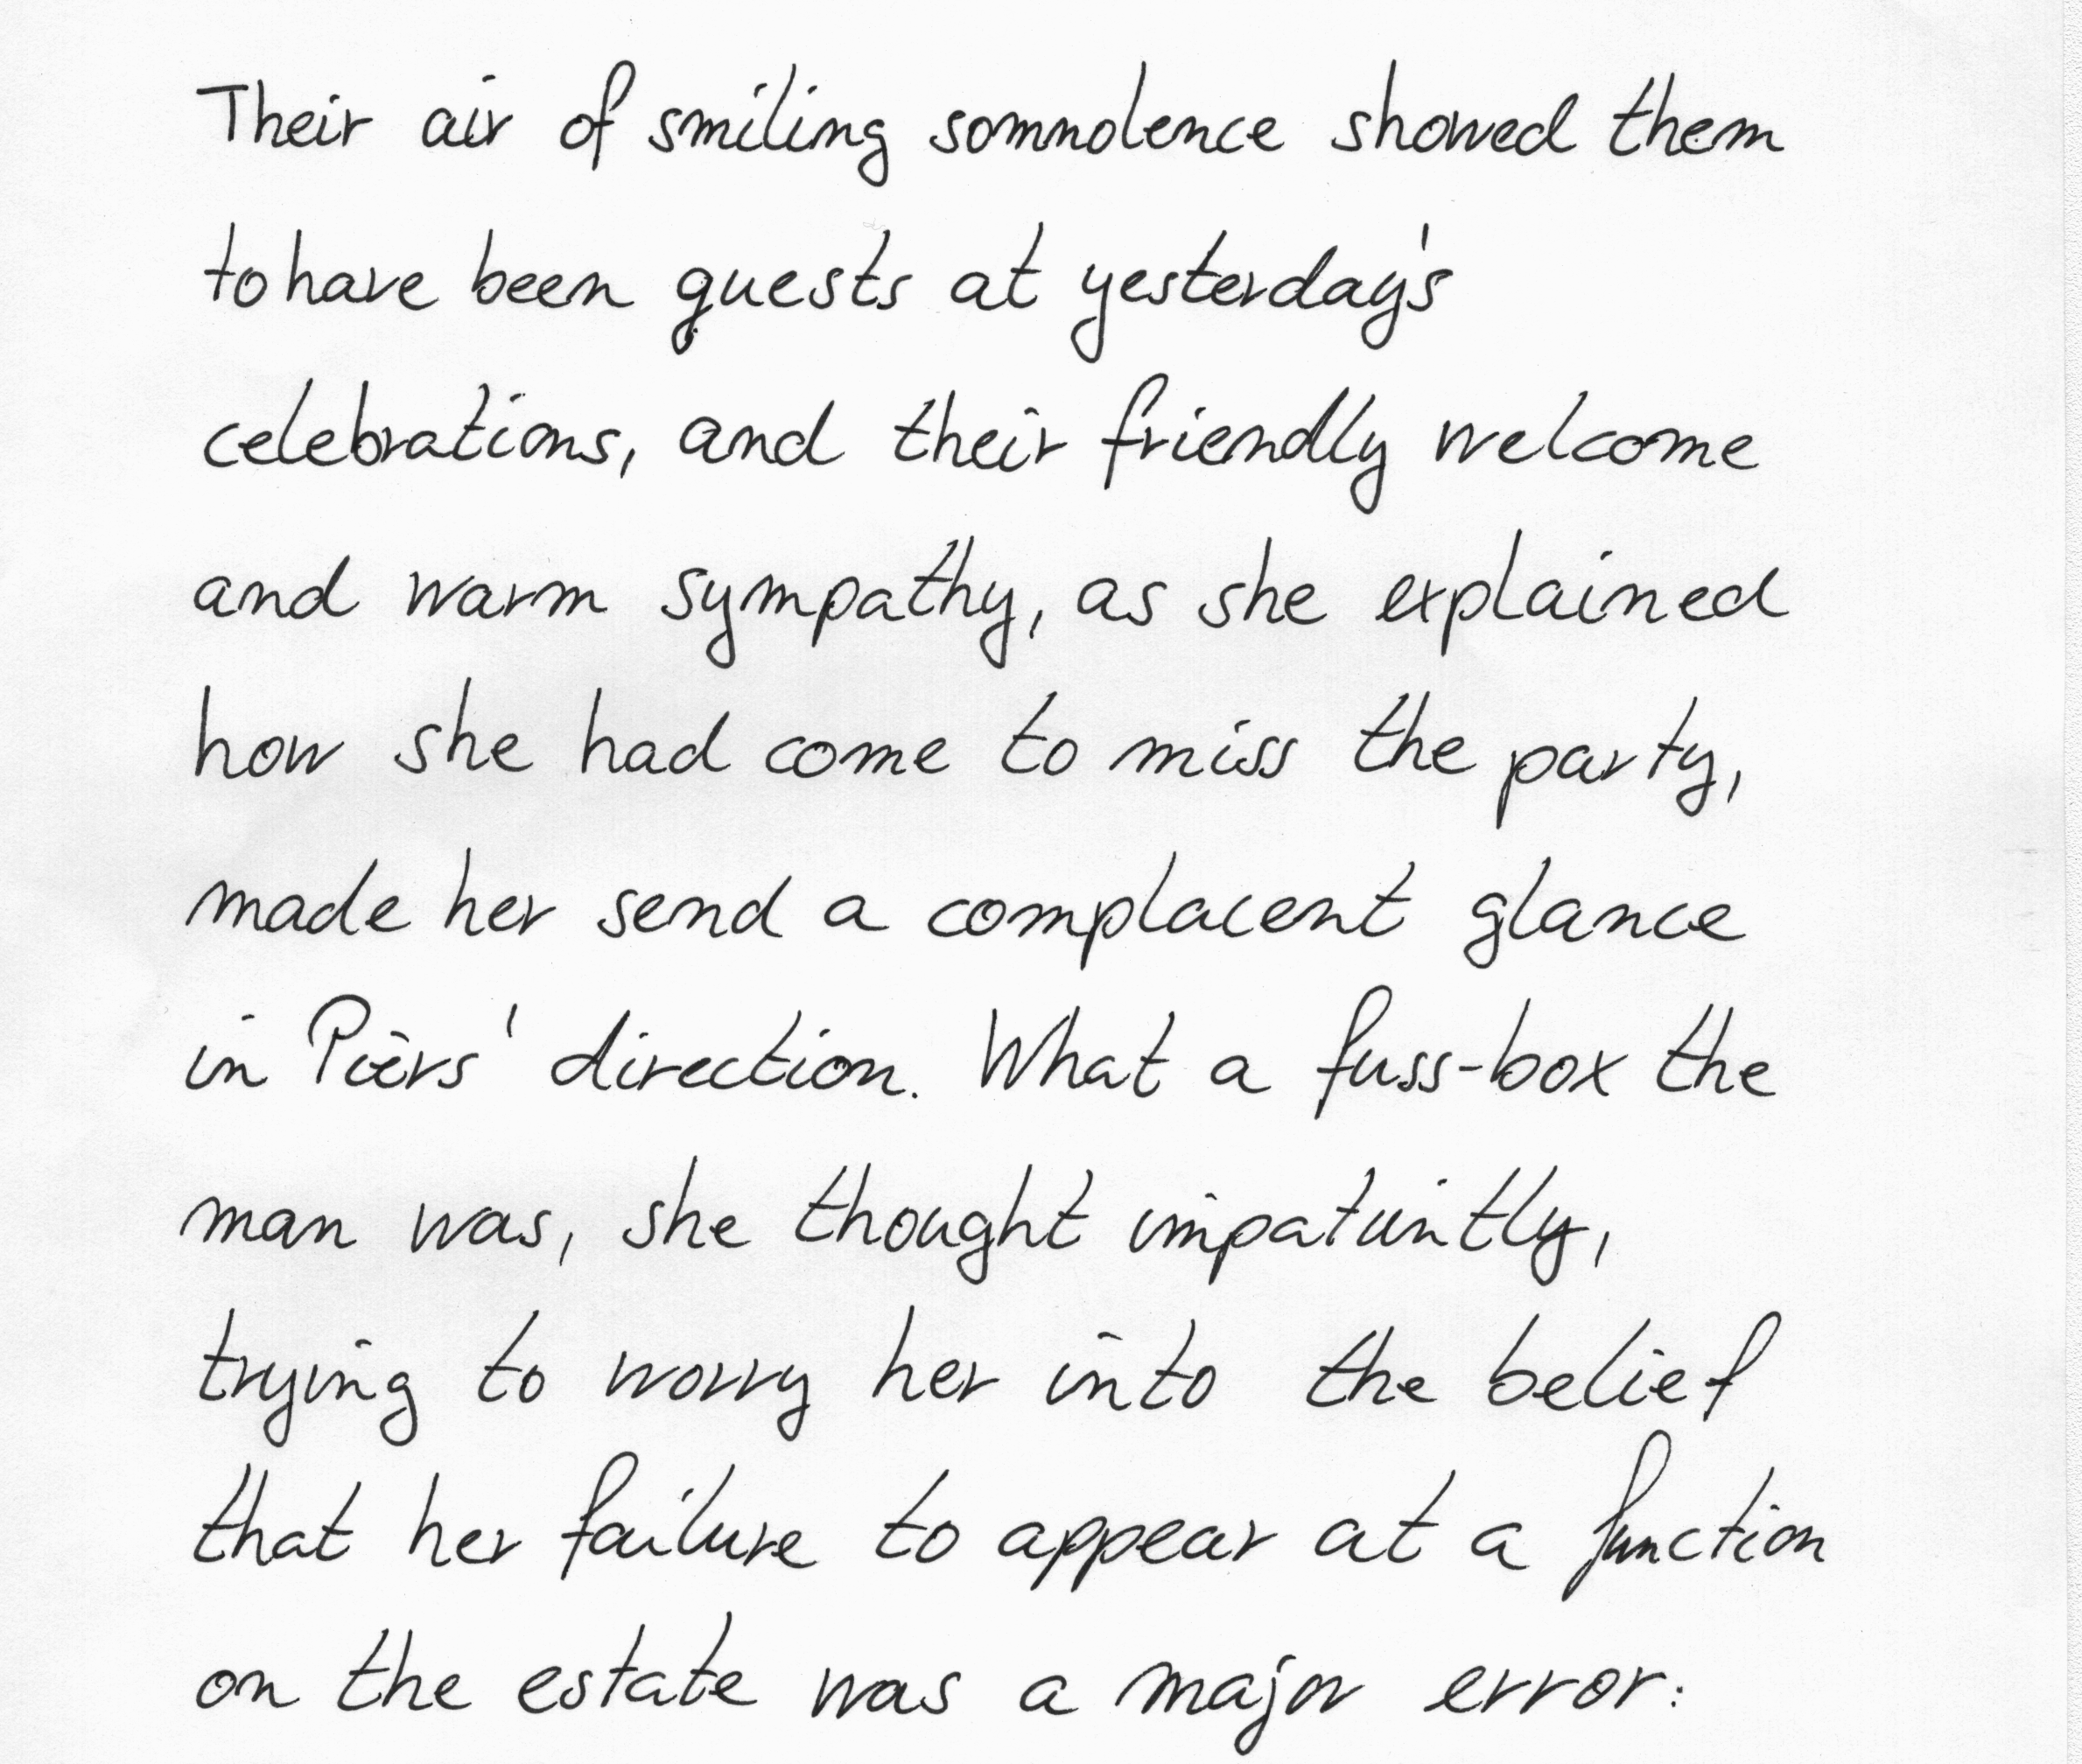 Their air of smiling somnolence showed them
to have been guests at yesterday's
celebrations, and their friendly welcome
and warm sympathy, as she explained
how she had come to miss the party,
made her send a complacent glance
in Piers' direction. What a fuss-box the
man was, she thought impatiently,
trying to worry her into the belief
that her failure to appear at a function
on the estate was a major error: